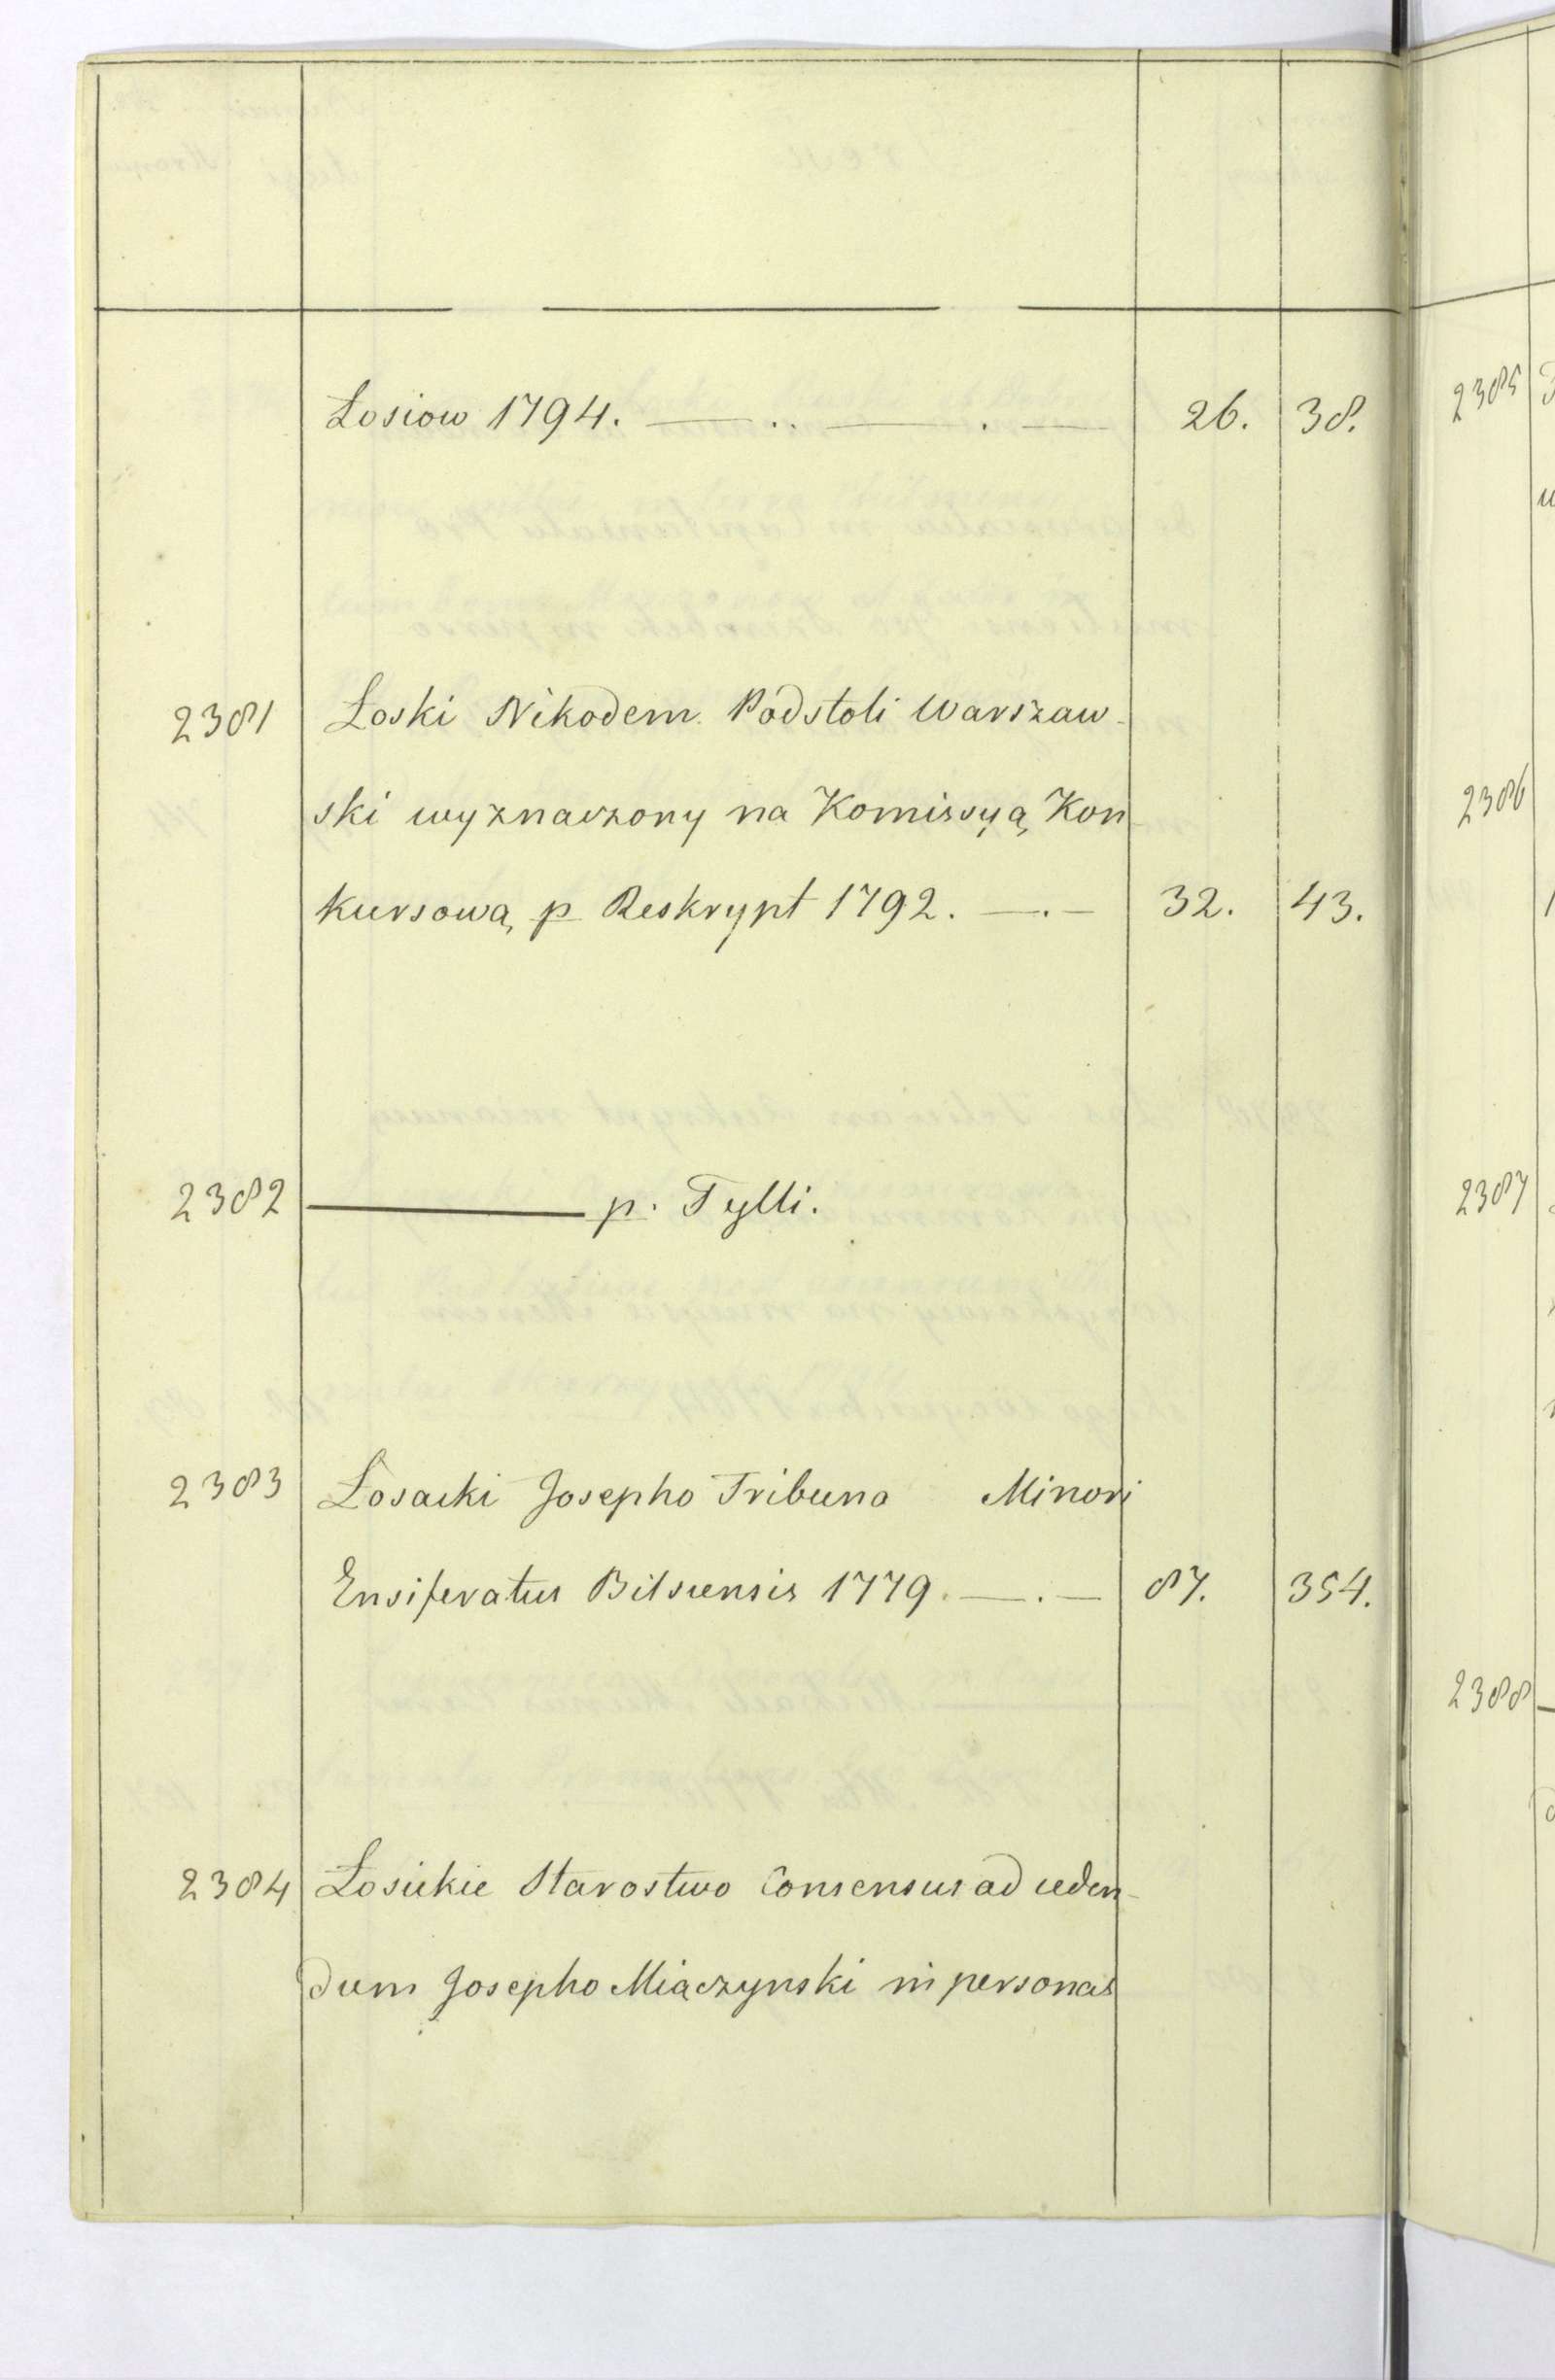 Łosiow 1794. — .. — . — 26. 38.
2381 Łoski Nikodem Podstoli Warszaw-
ski wyznaczony na Komissyą Kon
kursową p Reskrypt 1792. — . — 32. 43.
2382 ——— p. Tylli.
2383 Łosacki Josepho Tribuno Minori
Ensiferatus Bilscensis 1779. — . — 87. 354.
2384 Łosickie Starostwo Consensus ad ceden-
dum Josepho Miączynski in personas
2385
2386
2387
2388